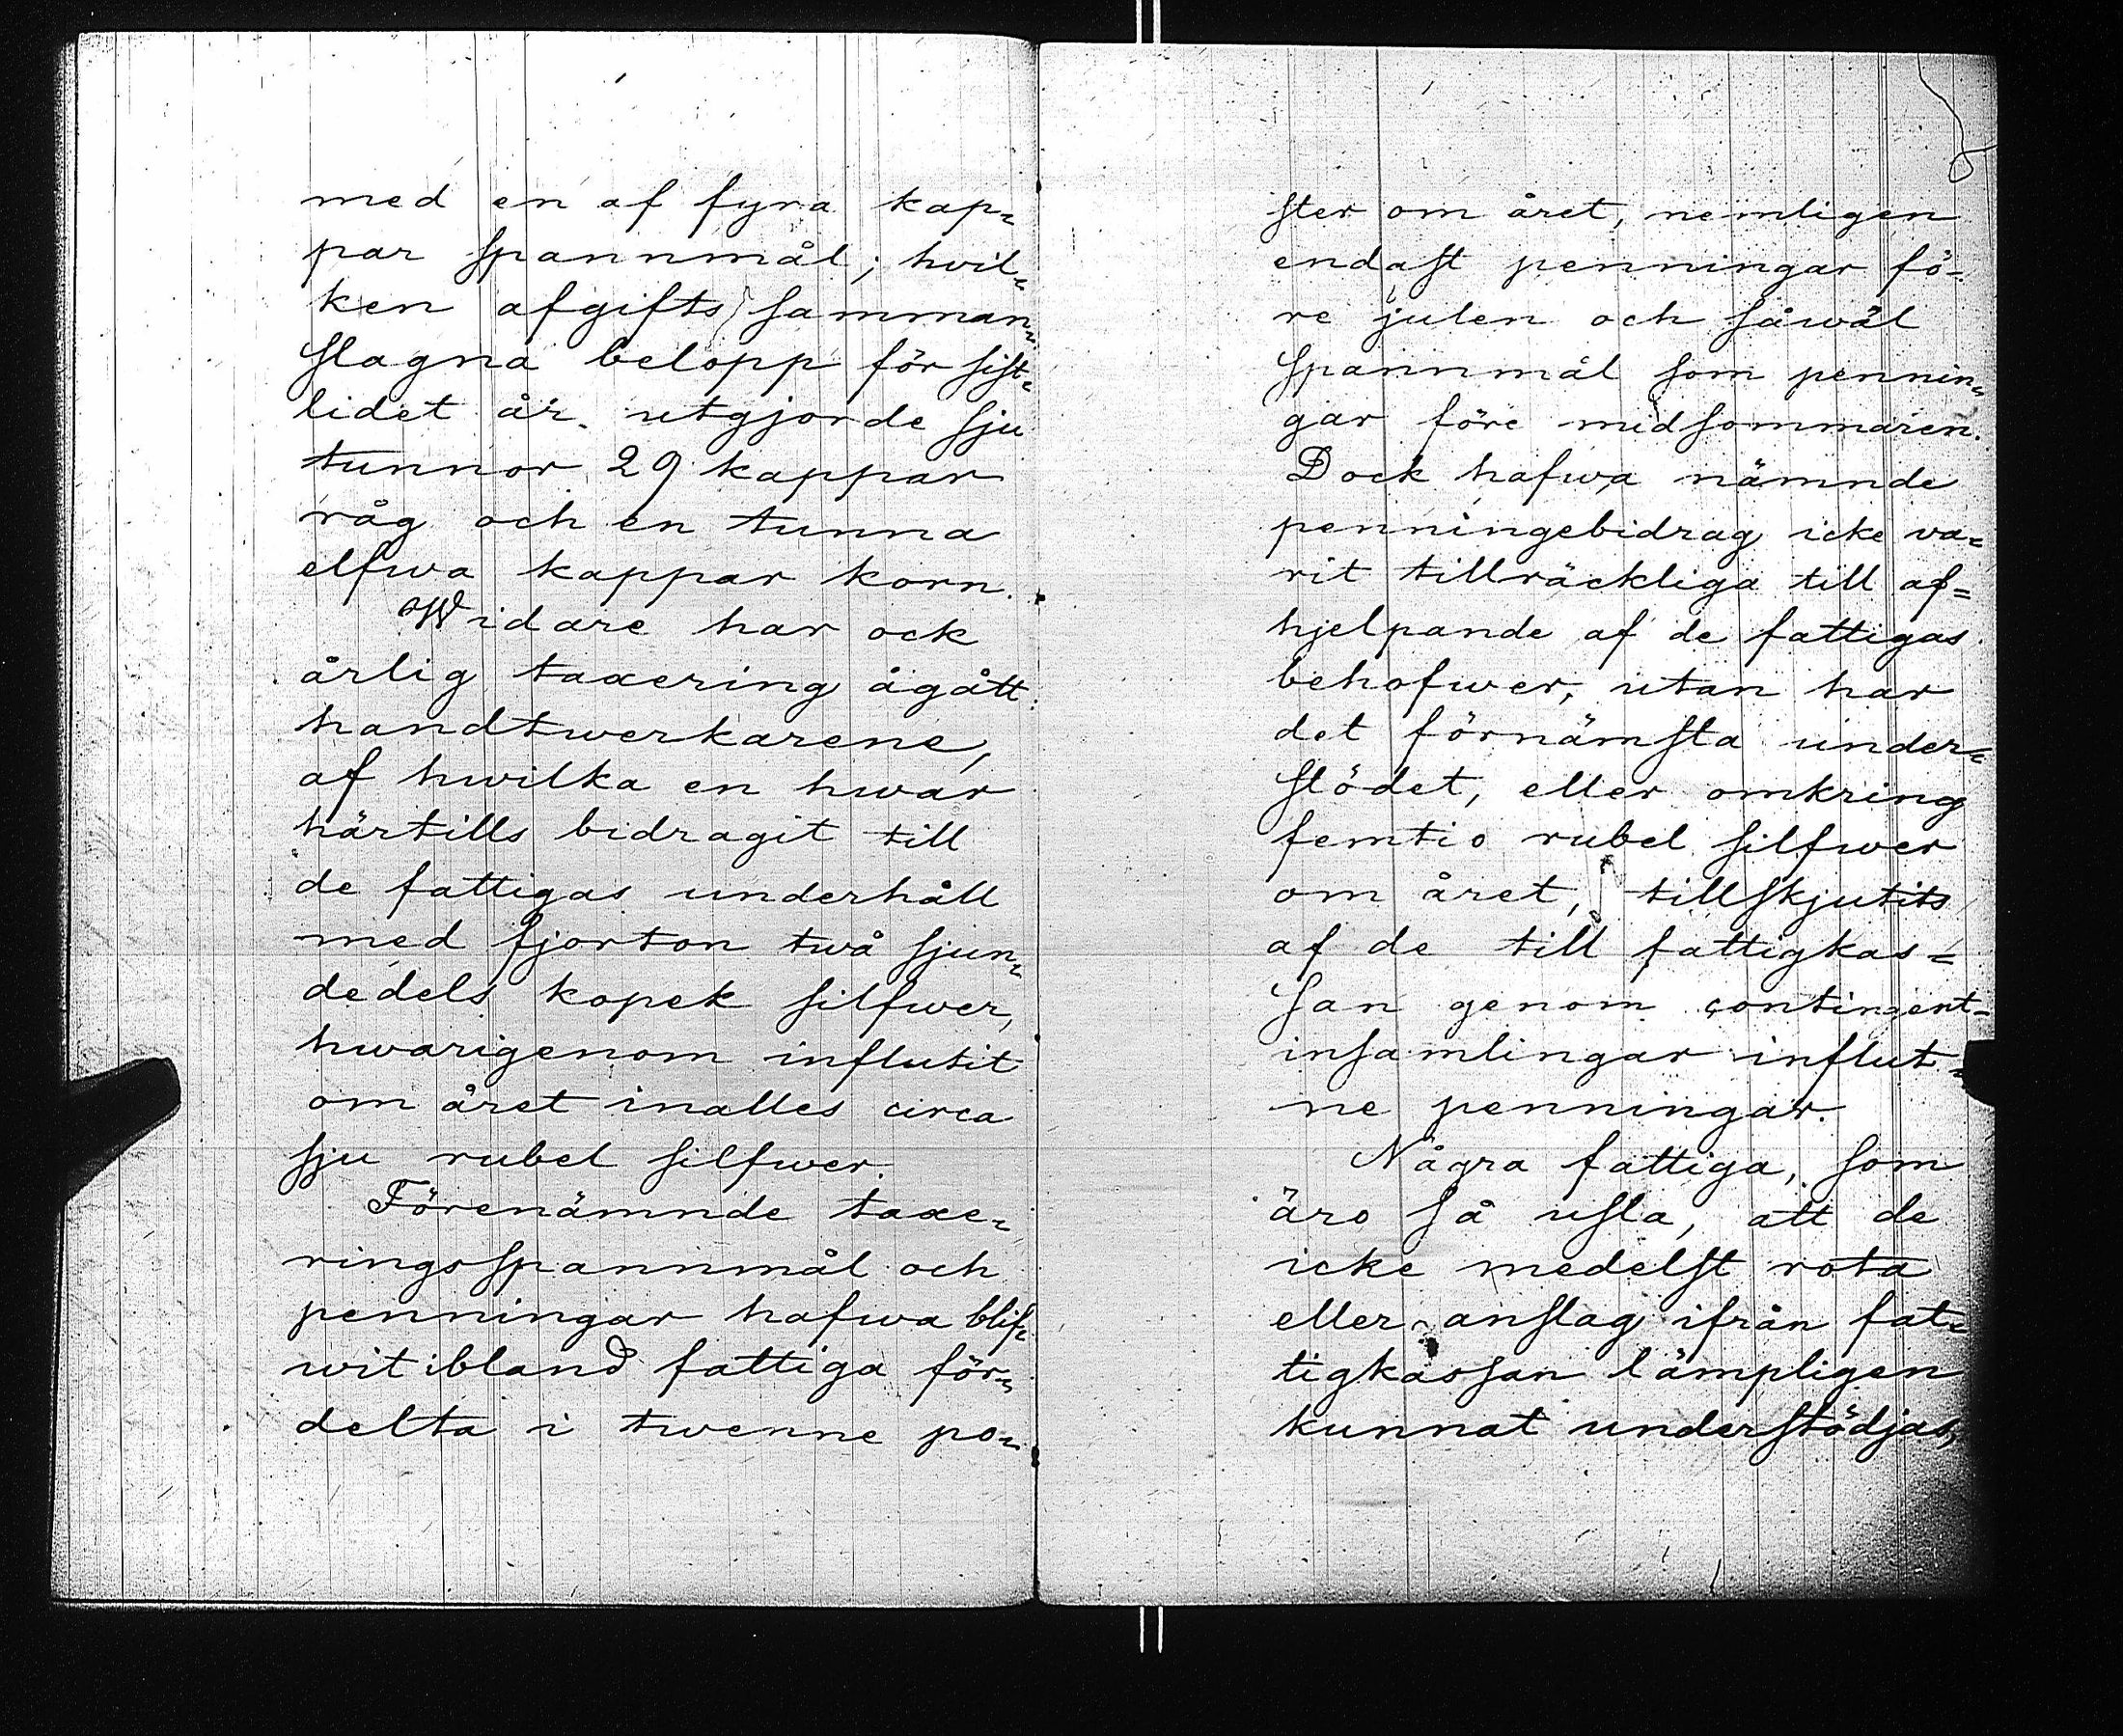 med en af fyra kap=
par spannmål; hvil=
ken afgifts samman=
slagna belopp för sist=
lidet år utgjorde sju
tunnor 29 kappar
råg och en tunna
elfwa kappar korn.
Widare har ock
årlig taxering ågått
handtwerkarene,
af hwilka en hwar
härtills bidragit till
de fattigas underhåll
med fjorton twå sjun=
dedels kopek silfwer,
hwarigenom influtit
om året inalles circa
sju rubel silfwer.
Förenämnde taxe=
ringsspannmål och
penningar hafwa blif=
wit ibland fattiga för=
delta i twenne po=
8
ster om året, nemligen
endast penningar fö=
re julen och såwäl
spannmål som pennin=
gar före midsommaren.
Dock hafwa nämnde
penningebidrag icke va=
rit tillräckliga till af=
hjelpande af de fattigas
behofwer, utan har
det förnämsta under=
stödet, eller omkring
femtio rubel silfwer
om året, tillskjutits
af de till fattigkas=
san genom contingent=
insamlingar influt=
ne penningar.
Några fattiga, som
äro så usla, att de
icke medelst rota
eller anslag ifrån fat=
tigkassan lämpligen
kunnat understödjas,